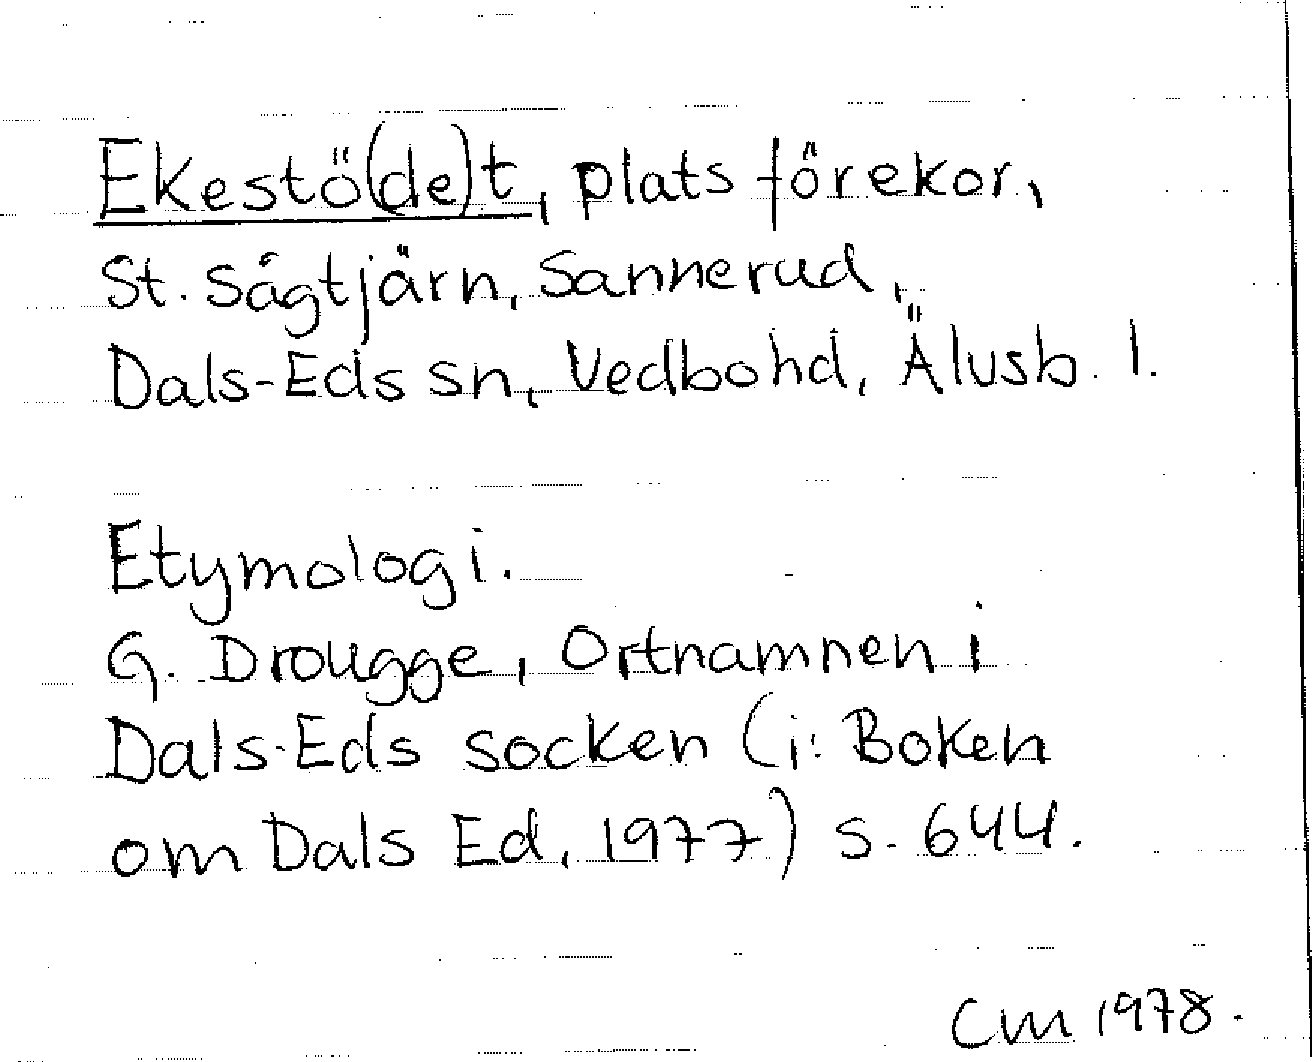 Ekestö(de)t, plats för ekor,
St. Sågtjärn, Sannerud,
Dals-Eds sn, Vedbohd, Älvsb. l.
Etymologi.
G. Drougge, Ortnamnen i
Dals-Eds socken (i: Boken
om Dals Ed, 1977) s. 644.
CM 1978.